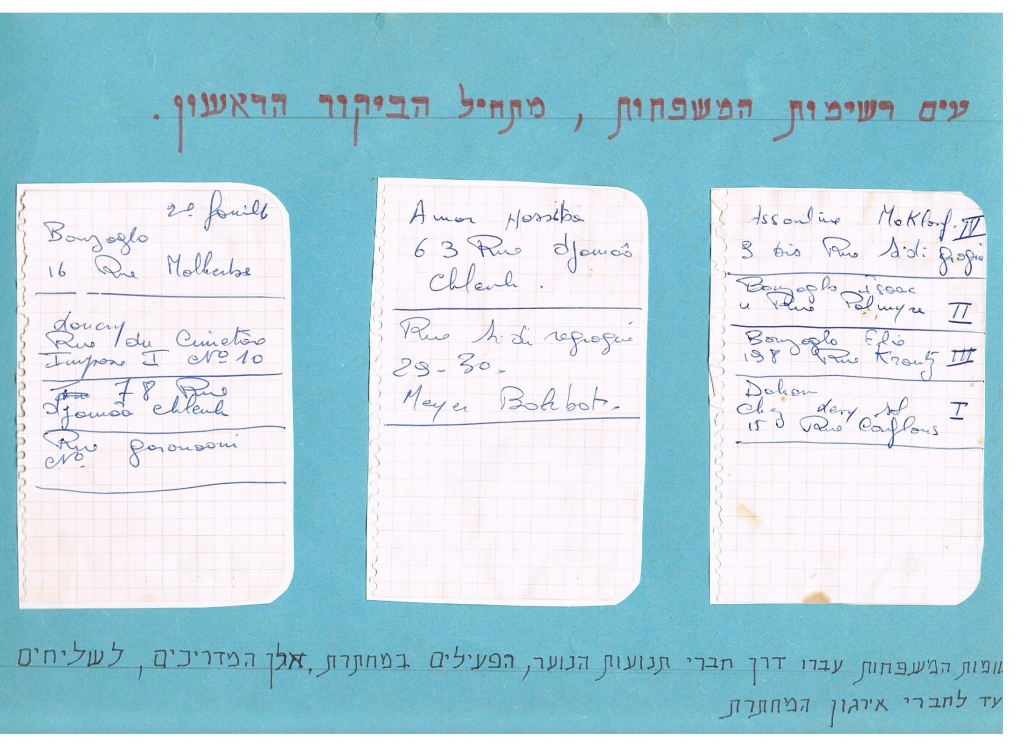 עים רשימות המשפחות, מתחיל הביקור הראשון.
2e
Bouzoglo
16 Rue Malherbe
Rue du Cimetière
Impasse I No 10
78 Rue
djamaâ chleuh
Rue
No.
Amar Hassiba
63 Rue djamaâ
Chleuh.
Rue Sidi regragui
29-30.
Meyer Botbot.
Assouline Maklouf. IV
3 bis Rue Sidi
Bouzoglo Isaac
11 Rue Palmyre II
Bouzoglo Elie
198 Rue Krantz III
Dahan
chez Levy I
15 Rue Conflans
מות המשפחות עברו דרך חברי תנועות הנוער, הפעילים במחתרת, אלך המדריכים, לשליחים
עד לחברי אירגון המחתרת